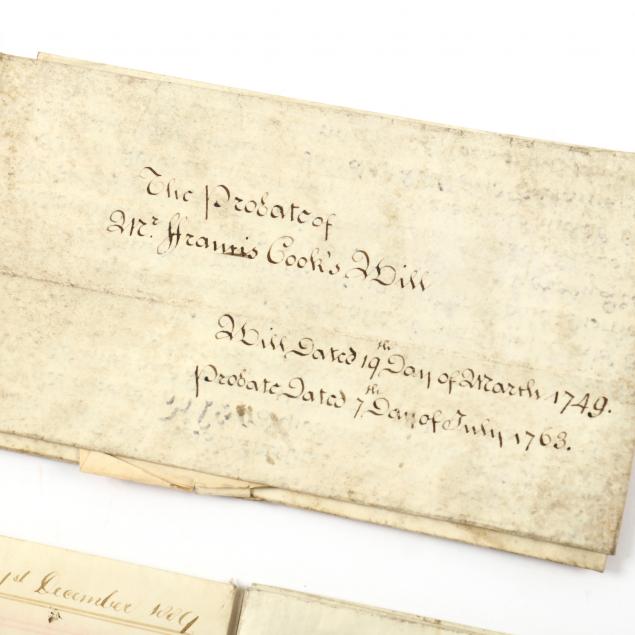 The Probate of
Mr. Francis Cook's Will
Will Dated 19th Day of March 1749.
Probate Dated 7th Day of July 1763.
1st December 1889